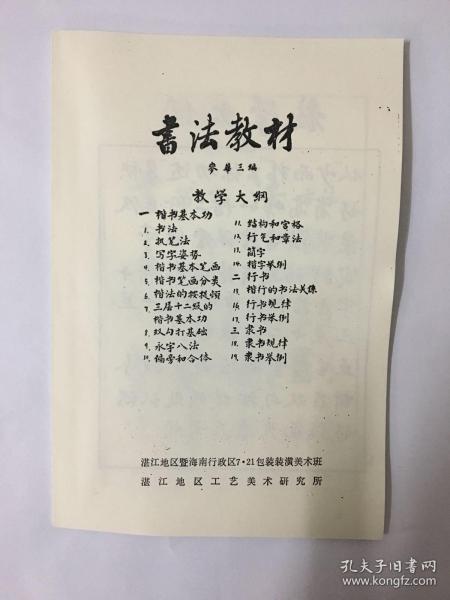 书法教材
麥華三编
教学大纲
一 楷书基本功
1. 书法
2. 执笔法
3. 写字姿势
4. 楷书基本笔画
5. 楷书笔画分类
6. 楷法的按提顿
7. 三层十二级的
楷书基本功
8. 双勾打基础
9. 永字八法
10. 偏旁和合体
11. 结构和宫格
12. 行气和章法
13. 简字
14. 楷字举例
二 行书
15. 楷行的书法关系
16. 行书规律
17. 行书举例
三 隶书
18. 隶书规律
19. 隶书举例
湛江地区暨海南行政区7·21包装装潢美术班
湛江地区工艺美术研究所
孔夫子旧书网
www.kongfz.com